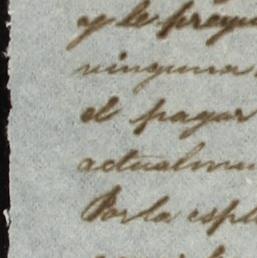 y le pregu
ninguna
el pagar
actualme
Por la espl